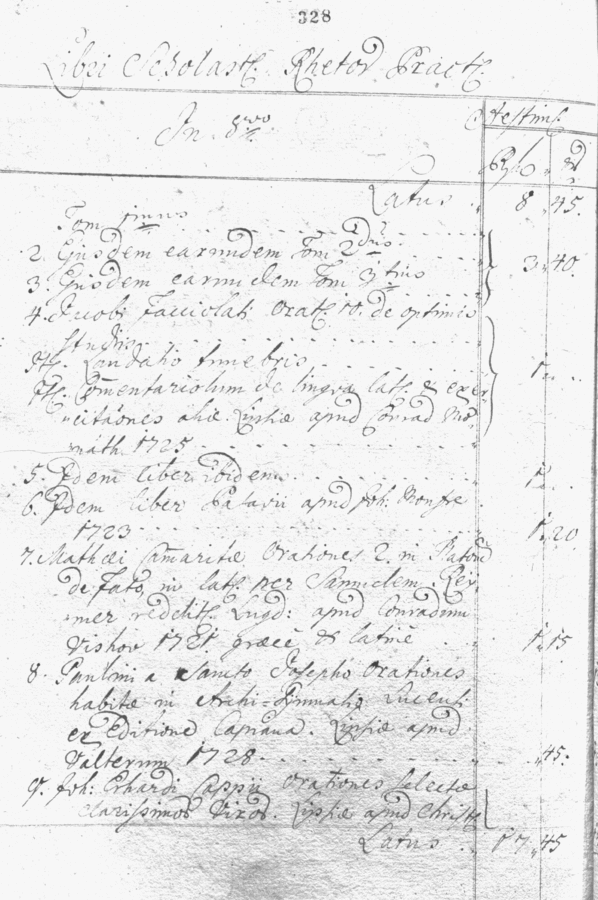 328
Libri Scholastc. Rhetor Practc.
In 8vo
Æstimc.
Rfl. d
Latus 8 45.
Tom primus
2. Ejusdem earundem Tom 2dus.
3. Ejusdem earundem Tom 3tius 3 40.
4. Jacobi Facciolati Oratc. 10. de optimis
studiis
Itc. Laudatio funebris 1
Itc. Comentariolum de lingva latc. & exer
citaōnes aliæ. Lipsiæ apud Conrad Mo
math. 1725
5. Idem liber ibidem 1
6. Idem liber Patavii apud Joh.
1723 1. 20
7. Mathæi Camariotæ Orationes 2. in
de Fato, in latc. per Samuelem Rei
mer redditc. Lugd: apud Conradum
Vishov 1721 græcè & latinè 1. 15
8. Paulini a Sancto Josepho Orationes
habitæ in Archi-Gymnasio
ex Editione Capiana. Lipsiæ apud
Valterum 1728 45.
9. Joh: Erhardi Cappii Orationes selectæ
clarissimor Viror. Lipsiæ apud
Latus 17 45